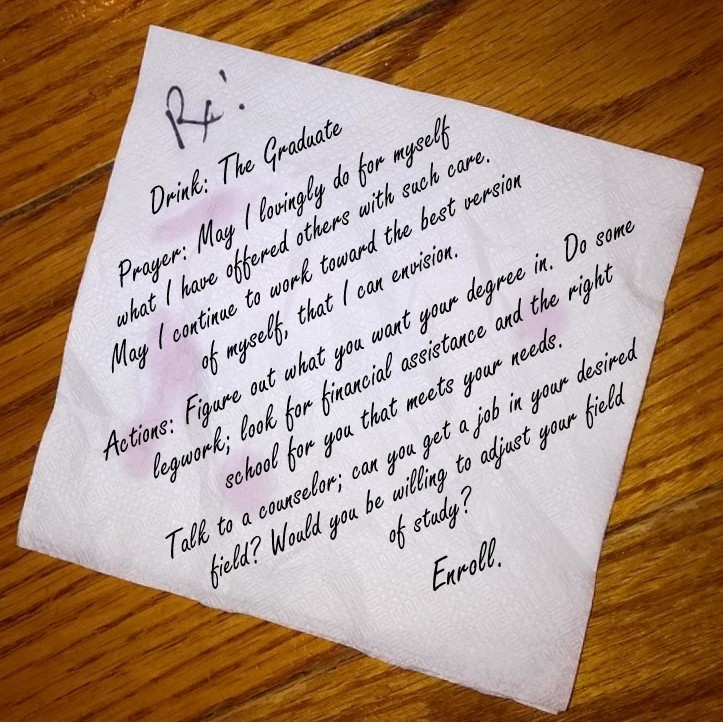 Rx:
Drink: The Graduate
Prayer: May I lovingly do for myself
what I have offered others with such care.
May I continue to work toward the best version
of myself, that I can envision.
Actions: Figure out what you want your degree in. Do some
legwork; look for financial assistance and the right
school for you that meets your needs.
Talk to a counselor; can you get a job in your desired
field? Would you be willing to adjust your field
of study?
Enroll.